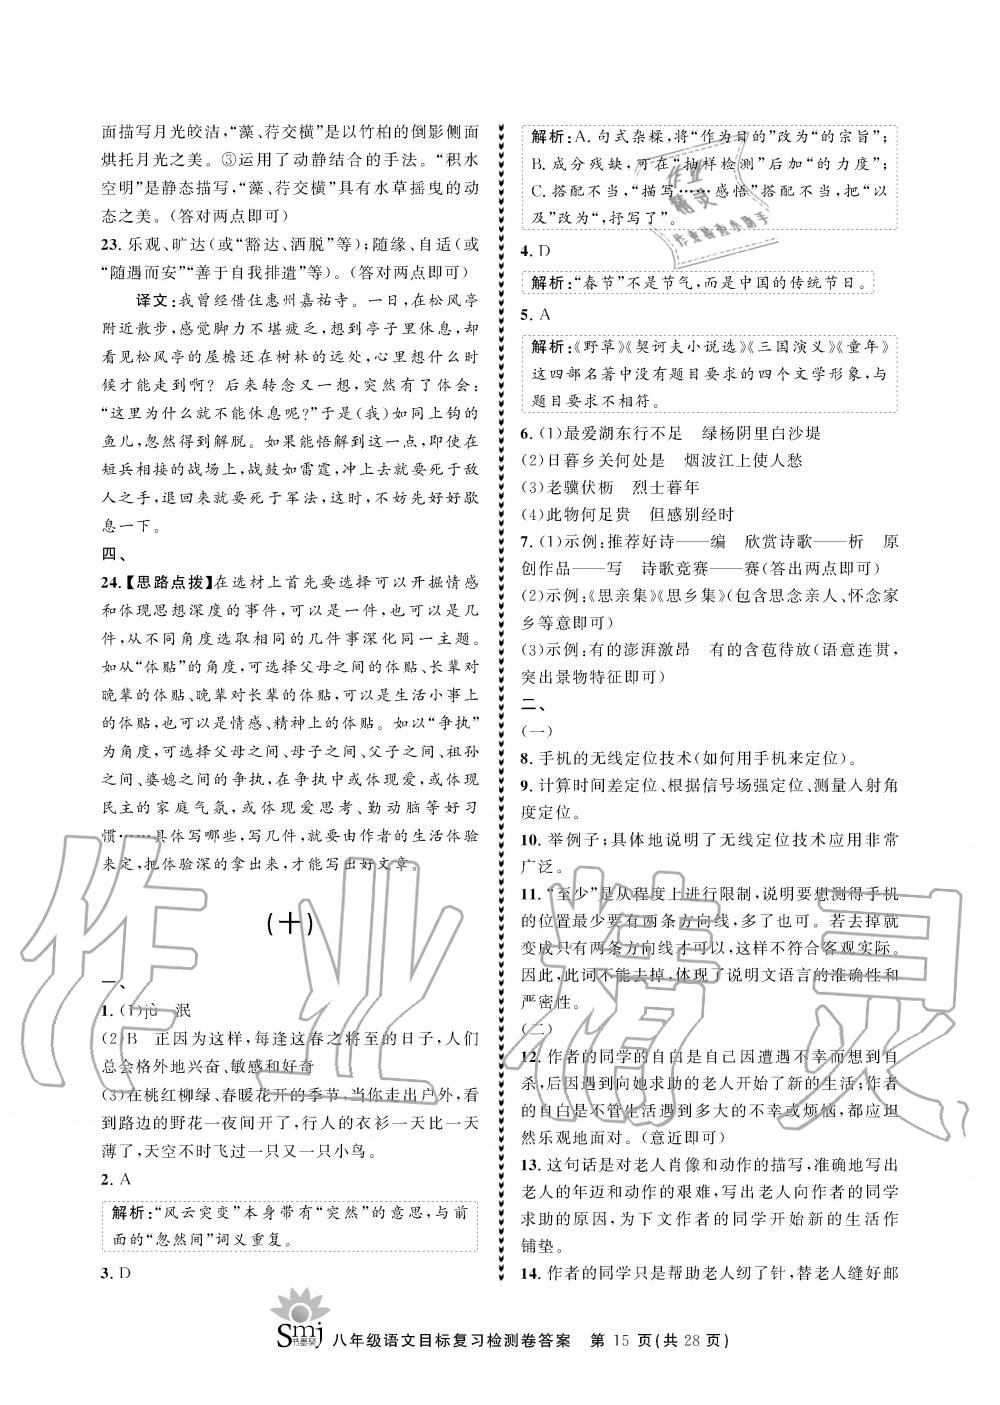 面描写月光皎洁，“藻、荇交横”是以竹柏的倒影侧面
烘托月光之美。③运用了动静结合的手法。“积水
空明”是静态描写，“藻、荇交横”具有水草摇曳的动
态之美。(答对两点即可)
23. 乐观、旷达(或“豁达、洒脱”等)；随缘、自适(或
“随遇而安”“善于自我排遣”等)。(答对两点即可)
译文：我曾经借住惠州嘉祐寺。一日，在松风亭
附近散步，感觉脚力不堪疲乏，想到亭子里休息，却
看见松风亭的屋檐还在树林的远处，心里想什么时
候才能走到啊？后来转念又一想，突然有了体会：
“这里为什么就不能休息呢？”于是(我)如同上钩的
鱼儿，忽然得到解脱。如果能悟解到这一点，即使在
短兵相接的战场上，战鼓如雷霆，冲上去就要死于敌
人之手，退回来就要死于军法，这时，不妨先好好歇
息一下。
四、
24.【思路点拨】在选材上首先要选择可以开掘情感
和体现思想深度的事件，可以是一件，也可以是几
件，从不同角度选取相同的几件事深化同一主题。
如从“体贴”的角度，可选择父母之间的体贴、长辈对
晚辈的体贴、晚辈对长辈的体贴，可以是生活小事上
的体贴，也可以是情感、精神上的体贴。如以“争执”
为角度，可选择父母之间、母子之间、父子之间、祖孙
之间、婆媳之间的争执，在争执中或体现爱，或体现
民主的家庭气氛，或体现爱思考、勤动脑等好习
惯……具体写哪些，写几件，就要由作者的生活体验
来定，把体验深的拿出来，才能写出好文章。
(十)
一、
1. (1)jù　泯
(2)B　正因为这样，每逢这春之将至的日子，人们
总会格外地兴奋、敏感和好奇
(3)在桃红柳绿、春暖花开的季节，当你走出户外，看
到路边的野花一夜间开了，行人的衣衫一天比一天
薄了，天空不时飞过一只又一只小鸟。
2. A
解析：“风云突变”本身带有“突然”的意思，与前
面的“忽然间”词义重复。
3. D
解析：A. 句式杂糅，将“作为目的”改为“的宗旨”；
B. 成分残缺，可在“抽样检测”后加“的力度”；
C. 搭配不当，“描写……感悟”搭配不当，把“以
及”改为“，抒写了”。
4. D
解析：“春节”不是节气，而是中国的传统节日。
5. A
解析：《野草》《契诃夫小说选》《三国演义》《童年》
这四部名著中没有题目要求的四个文学形象，与
题目要求不相符。
6. (1)最爱湖东行不足　绿杨阴里白沙堤
(2)日暮乡关何处是　烟波江上使人愁
(3)老骥伏枥　烈士暮年
(4)此物何足贵　但感别经时
7. (1)示例：推荐好诗——编　欣赏诗歌——析　原
创作品——写　诗歌竞赛——赛(答出两点即可)
(2)示例：《思亲集》《思乡集》(包含思念亲人、怀念家
乡等意即可)
(3)示例：有的澎湃激昂　有的含苞待放(语意连贯，
突出景物特征即可)
二、
(一)
8. 手机的无线定位技术(如何用手机来定位)。
9. 计算时间差定位、根据信号场强定位、测量入射角
度定位。
10. 举例子；具体地说明了无线定位技术应用非常
广泛。
11. “至少”是从程度上进行限制，说明要想测得手机
的位置最少要有两条方向线，多了也可。若去掉就
变成只有两条方向线才可以，这样不符合客观实际。
因此，此词不能去掉，体现了说明文语言的准确性和
严密性。
(二)
12. 作者的同学的自白是自己因遭遇不幸而想到自
杀，后因遇到向她求助的老人开始了新的生活；作者
的自白是不管生活遇到多大的不幸或烦恼，都应坦
然乐观地面对。(意近即可)
13. 这句话是对老人肖像和动作的描写，准确地写出
老人的年迈和动作的艰难，写出老人向作者的同学
求助的原因，为下文作者的同学开始新的生活作
铺垫。
14. 作者的同学只是帮助老人纫了针，替老人缝好邮
Smj
书墨缘
八年级语文目标复习检测卷答案　第 15 页(共 28 页)
作业精灵
作业
精灵
作业检查小助手